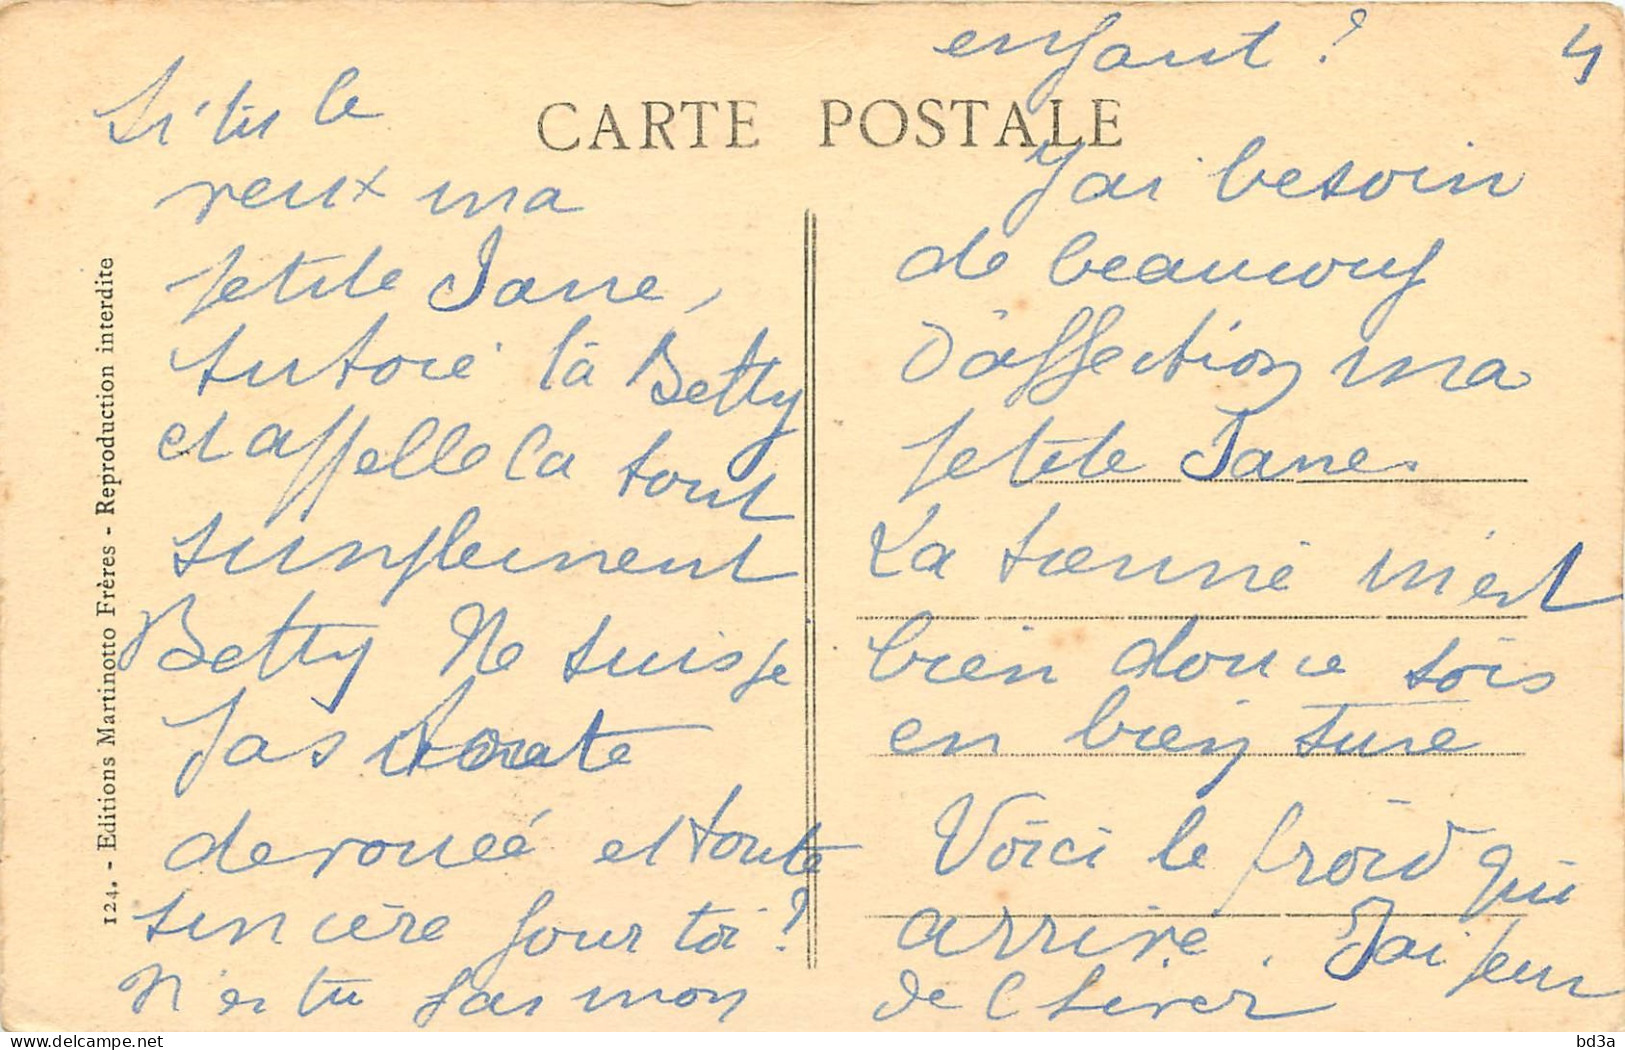 4
CARTE POSTALE
Si tu le
veux ma
petite Jane,
aussi là Betty
et appelle la tout
simplement
Betty Ne suis je
pas toute
dévouée et toute
sincère pour toi ?
N'es tu pas mon
enfant ?
J'ai besoin
de beaucoup
d'affection ma
petite Jane.
La tienne m'est
bien douce sois
en bien sure
Voici le froid qui
arrive. J'ai peur
de l'hiver
124. - Editions Martinotto Frères - Reproduction interdite
bd3a